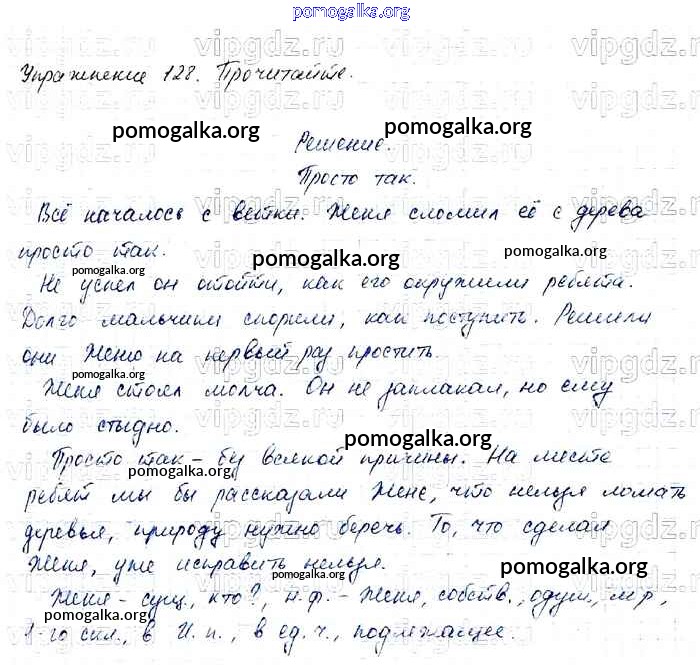 pomogalka.org
Упражнение 128. Прочитайте.
vipgdz.ru
pomogalka.org pomogalka.org
Решение.
Просто так.
Всё началось с ветки. Женя сломил её с дерева
просто так.
pomogalka.org pomogalka.org pomogalka.org
Не успел он отойти, как его окружили ребята.
Долго мальчики спорили, как поступить. Решили
они Женю на первый раз простить.
pomogalka.org pomogalka.org
Женя стоял молча. Он не заплакал, но ему
было стыдно.
pomogalka.org
Просто так – без всякой причины. На месте
pomogalka.org
ребят мы бы рассказали Жене, что нельзя ломать
pomogalka.org
деревья, природу нужно беречь. То, что сделал
Женя, уже исправить нельзя.
pomogalka.org
Женя – сущ., кто?, н.ф. – Женя, собств., одуш., м.р.,
pomogalka.org pomogalka.org
1-го скл., в И.п., в ед.ч., подлежащее.